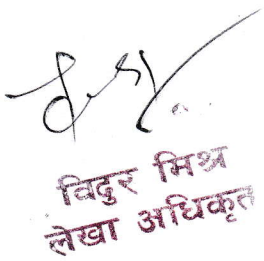 विदुर मिश्र
लेखा अधिकृत